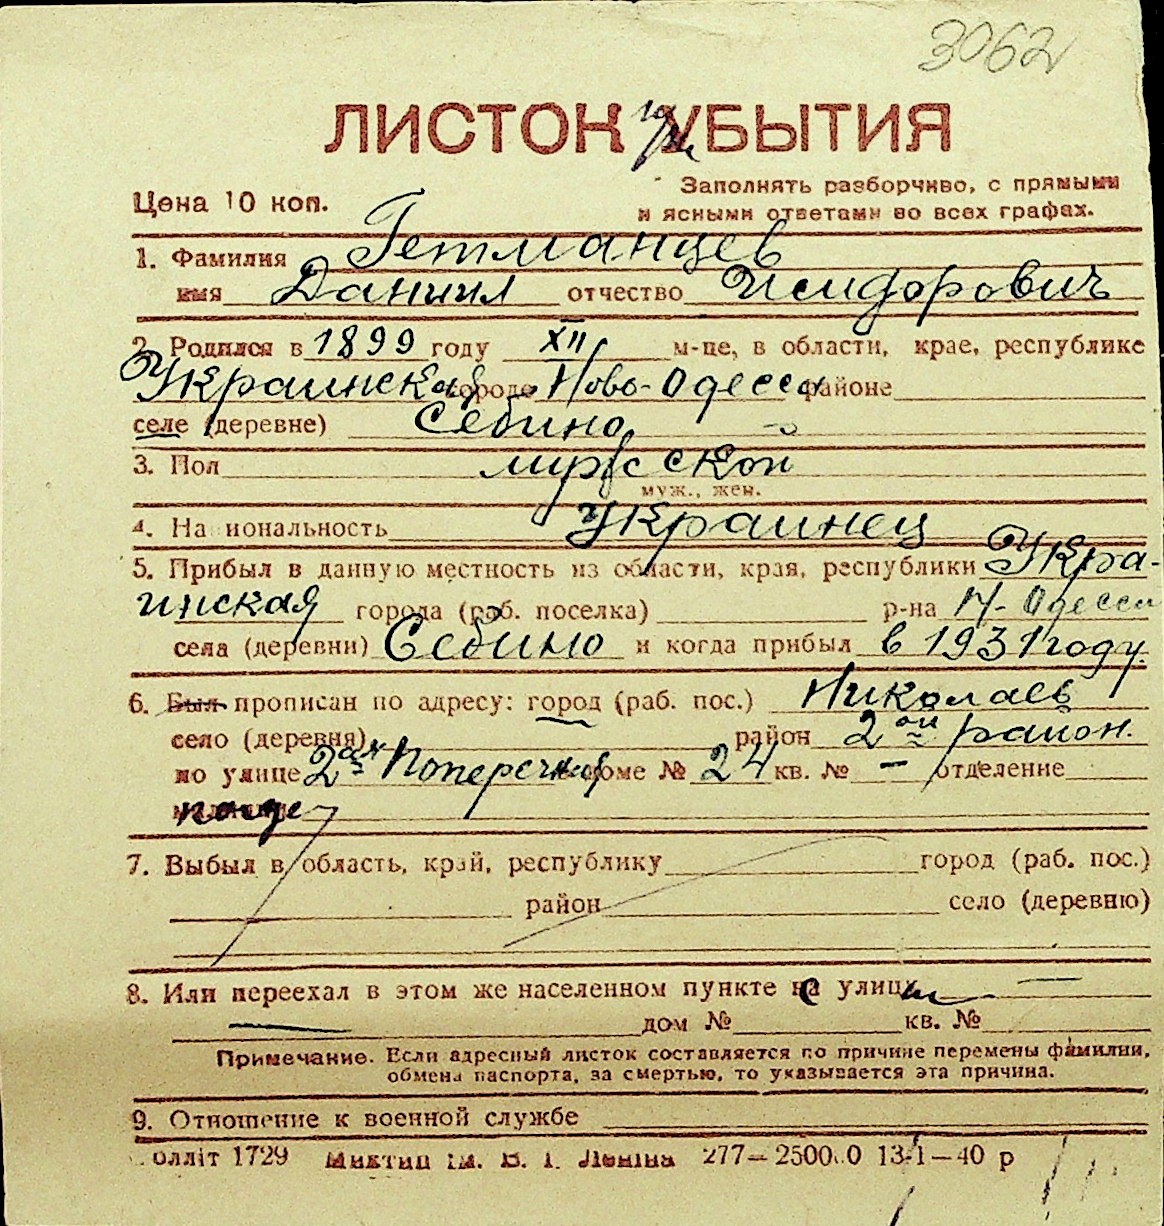 3062
ЛИСТОК УБЫТИЯ
Цена 10 коп.
Заполнять разборчиво, с прямыми
и ясными ответами во всех графах.
1. Фамилия Гетманцев
имя Даниил отчество Исидорович
2. Родился в 1899 году XII м-це, в области, крае, республике
Украинская городе Ново-Одесса районе
селе (деревне) Себино
3. Пол мужской
муж., жен.
4. На иональность Украинец
5. Прибыл в данную местность из области, края, республики Укра-
инская города (раб. поселка) р-на Н-Одесса
села (деревни) Себино и когда прибыл в 1931 году.
6. Был прописан по адресу: город (раб. пос.) Николаев
село (деревня) район 2ой район.
по улице 2ая Поперечная доме № 24 кв. № — отделение
7. Выбыл в область, край, республику город (раб. пос.)
район село (деревню)
8. Или переехал в этом же населенном пункте с улицы —
— дом № кв. №
Примечание. Если адресный листок составляется по причине перемены фамилии,
обмена паспорта, за смертью, то указывается эта причина.
9. Отношение к военной службе
олліт 1729 Миктип ім. В. І. Леніна 277—2500.0 13/1—40 р